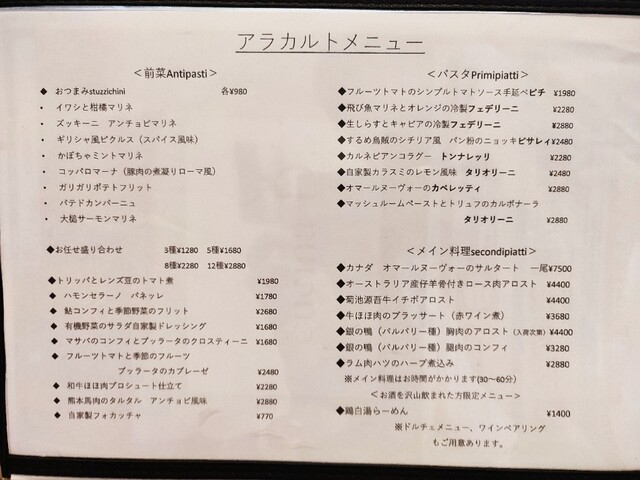 アラカルトメニュー
＜前菜Antipasti＞
◆ おつまみstuzzichini 各¥980
・ イワシと柑橘マリネ
・ ズッキーニ アンチョビマリネ
・ ギリシャ風ピクルス（スパイス風味）
・ かぼちゃミントマリネ
・ コッパロマーナ（豚肉の煮凝りローマ風）
・ ガリガリポテトフリット
・ パテドカンパーニュ
・ 大槌サーモンマリネ
◆お任せ盛り合わせ 3種¥1280 5種¥1680
8種¥2280 12種¥2880
◆トリッパとレンズ豆のトマト煮 ¥1980
◆ ハモンセラーノ パネッレ ¥1780
◆ 鮎コンフィと季節野菜のフリット ¥2680
◆ 有機野菜のサラダ自家製ドレッシング ¥1680
◆ マサバのコンフィとブッラータのクロスティーニ ¥1680
◆ フルーツトマトと季節のフルーツ
ブッラータのカプレーゼ ¥2480
◆ 和牛ほほ肉プロシュート仕立て ¥2280
◆ 熊本馬肉のタルタル アンチョビ風味 ¥2880
◆ 自家製フォカッチャ ¥770
＜パスタPrimipiatti＞
◆フルーツトマトのシンプルトマトソース手延べピチ ¥1980
◆飛び魚マリネとオレンジの冷製フェデリーニ ¥2280
◆生しらすとキャビアの冷製フェデリーニ ¥2880
◆するめ烏賊のシチリア風 パン粉のニョッキピサレィ¥2480
◆カルネビアンコラグー トンナレッリ ¥2280
◆自家製カラスミのレモン風味 タリオリーニ ¥2480
◆オマールヌーヴォーのカペレッティ ¥2880
◆マッシュルームペーストとトリュフのカルボナーラ
タリオリーニ ¥2880
＜メイン料理secondipiatti＞
◆カナダ オマールヌーヴォーのサルタート 一尾¥7500
◆オーストラリア産仔羊骨付きロース肉アロスト ¥4400
◆菊池源吾牛イチボアロスト ¥4400
◆牛ほほ肉のブラッサート（赤ワイン煮） ¥3680
◆銀の鴨（バルバリー種）胸肉のアロスト（入荷次第）¥4400
◆銀の鴨（バルバリー種）腿肉のコンフィ ¥3280
◆ラム肉ハツのハーブ煮込み ¥2880
※メイン料理はお時間がかかります（30～60分）
＜お酒を沢山飲まれた方限定メニュー＞
◆鶏白湯らーめん ¥1400
※ドルチェメニュー、ワインペアリング
もご用意あります。